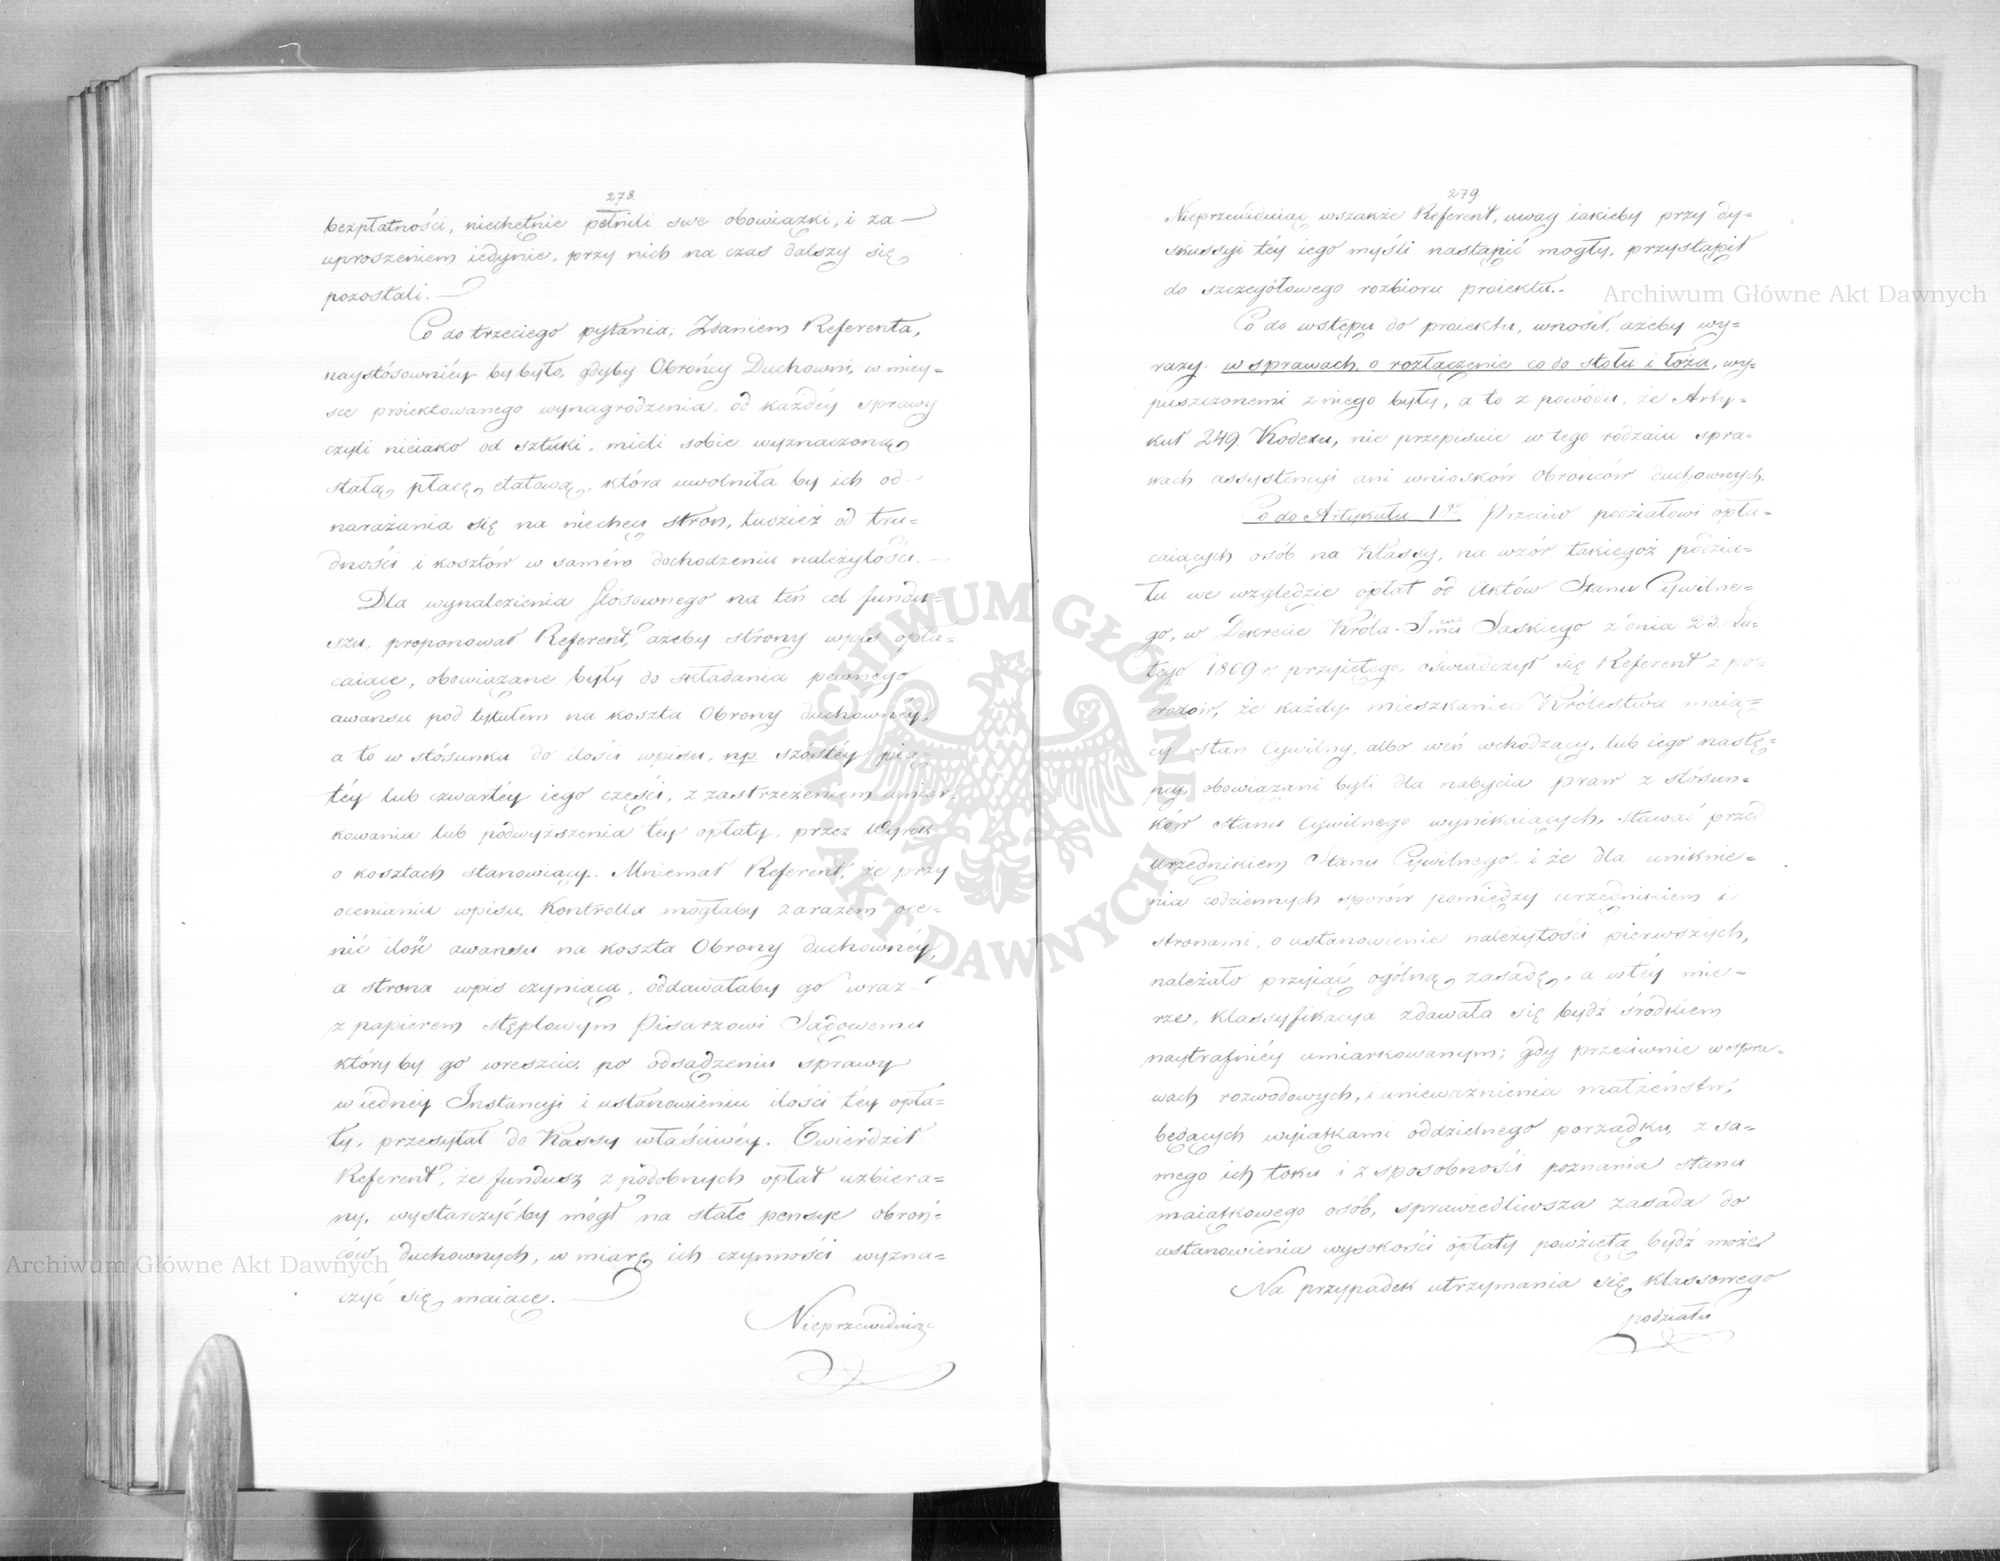 278
bezpłatności, niechętnie pełnili swe obowiązki, i za
uproszeniem iedynie, przy nich na czas dalszy się
pozostali. —
Co do trzeciego pytania; Zdaniem Referenta,
naystósownićy by było, gdyby Obrońcy Duchowni, w miey=
sce proiektowanego wynagrodzenia, od każdéy sprawy
czyli nieiako od sztuki, mieli sobie wyznaczoną
stałą płacę etatową, która uwolniła by ich od
narażania się na niechęci stron, tudzież od tru=
dności i kosztów w samém dochodzeniu należytości. —
Dla wynalezienia stósownego na ten cel fundu=
szu, proponował Referent, ażeby strony wpis opła=
caiące, obowiązane były do składania pewnego
awansu pod tytułem na koszta Obrony duchownéy,
a to w stósunku do ilości wpisu, np szóstéy pią=
téy lub czwartéy iego części, z zastrzeżeniem umiar=
kowania lub podwyższenia téy opłaty, przez Wyrok
o kosztach stanowiący. Mniemał Referent, że przy
ocenianiu wpisu, Kontrolla mogłaby zarazem oce=
nić ilość awansu na koszta Obrony duchownéy,
a strona wpis czyniąca, oddawałaby go wraz
z papierem stęplowym Pisarzowi Sądowemu
który by go wreszcie, po odsądzeniu sprawy
w iednéy Instancyi i ustanowieniu ilości téy opła=
ty, przesyłał do Kassy właściwéy. Twierdził
Referent, że fundusz z podobnych opłat uzbiera=
ny, wystarczyćby mógł na stałe pensye obroń=
ców duchownych, w miarę ich czynności wyzna=
czyć się maiące. —
Nieprzewiduiąc
279
Nieprzewiduiąc wszakże Referent, uwag iakieby przy dy=
skussyi téy iego myśli nastąpić mogły, przystąpił
do szczegółowego rozbioru proiektu.
Co do wstępu do proiektu, wnosił, ażeby wy=
razy: w sprawach, o rozłączenie co do stołu i łoża, wy=
puszczonemi z niego były, a to z powodu, że Arty=
kuł 249. Kodexu, nie przepisuie w tego rodzaiu spra=
wach assystencyi ani wniosków Obrońców duchownych.
Co do Artykułu 1go Przeciw podziałowi opła=
caiących osób na Klassy, na wzór takiegoż podzia=
łu we względzie opłat od Aktów Stanu Cywilne=
go, w Dekrecie Króla Jmci Saskiego z dnia 23. Lu=
tego 1809 r. przyiętego, oświadczył się Referent z po=
wodów, że każdy mieszkaniec Królestwa maią=
cy stan Cywilny, albo weń wchodzący, lub iego nastę=
pcy, obowiązani byli dla nabycia praw z stósun=
ków stanu Cywilnego wynikaiących, stawać przed
Urzędnikiem Stanu Cywilnego, i że dla uniknie=
nia codziennych sporów pomiędzy urzędnikiem i
stronami, o ustanowienie należytości pierwszych,
należało przyiąć ogólną zasadę, a w téy mie=
rze, klassyfikacya zdawała się bydź środkiem
naytrafniéy umiarkowanym; gdy przeciwnie w spra=
wach rozwodowych, i unieważnienia małżeństw,
będących wyiątkami oddzielnego porządku, z sa=
mego ich toku i z sposobności poznania stanu
maiątkowego osób, sprawiedliwsza zasada do
ustanowienia wysokości opłaty powzięta bydź może.
Na przypadek utrzymania się klassowego
podziału
Archiwum Główne Akt Dawnych
Archiwum Główne Akt Dawnych
ARCHIWUM GŁÓWNE AKT DAWNYCH